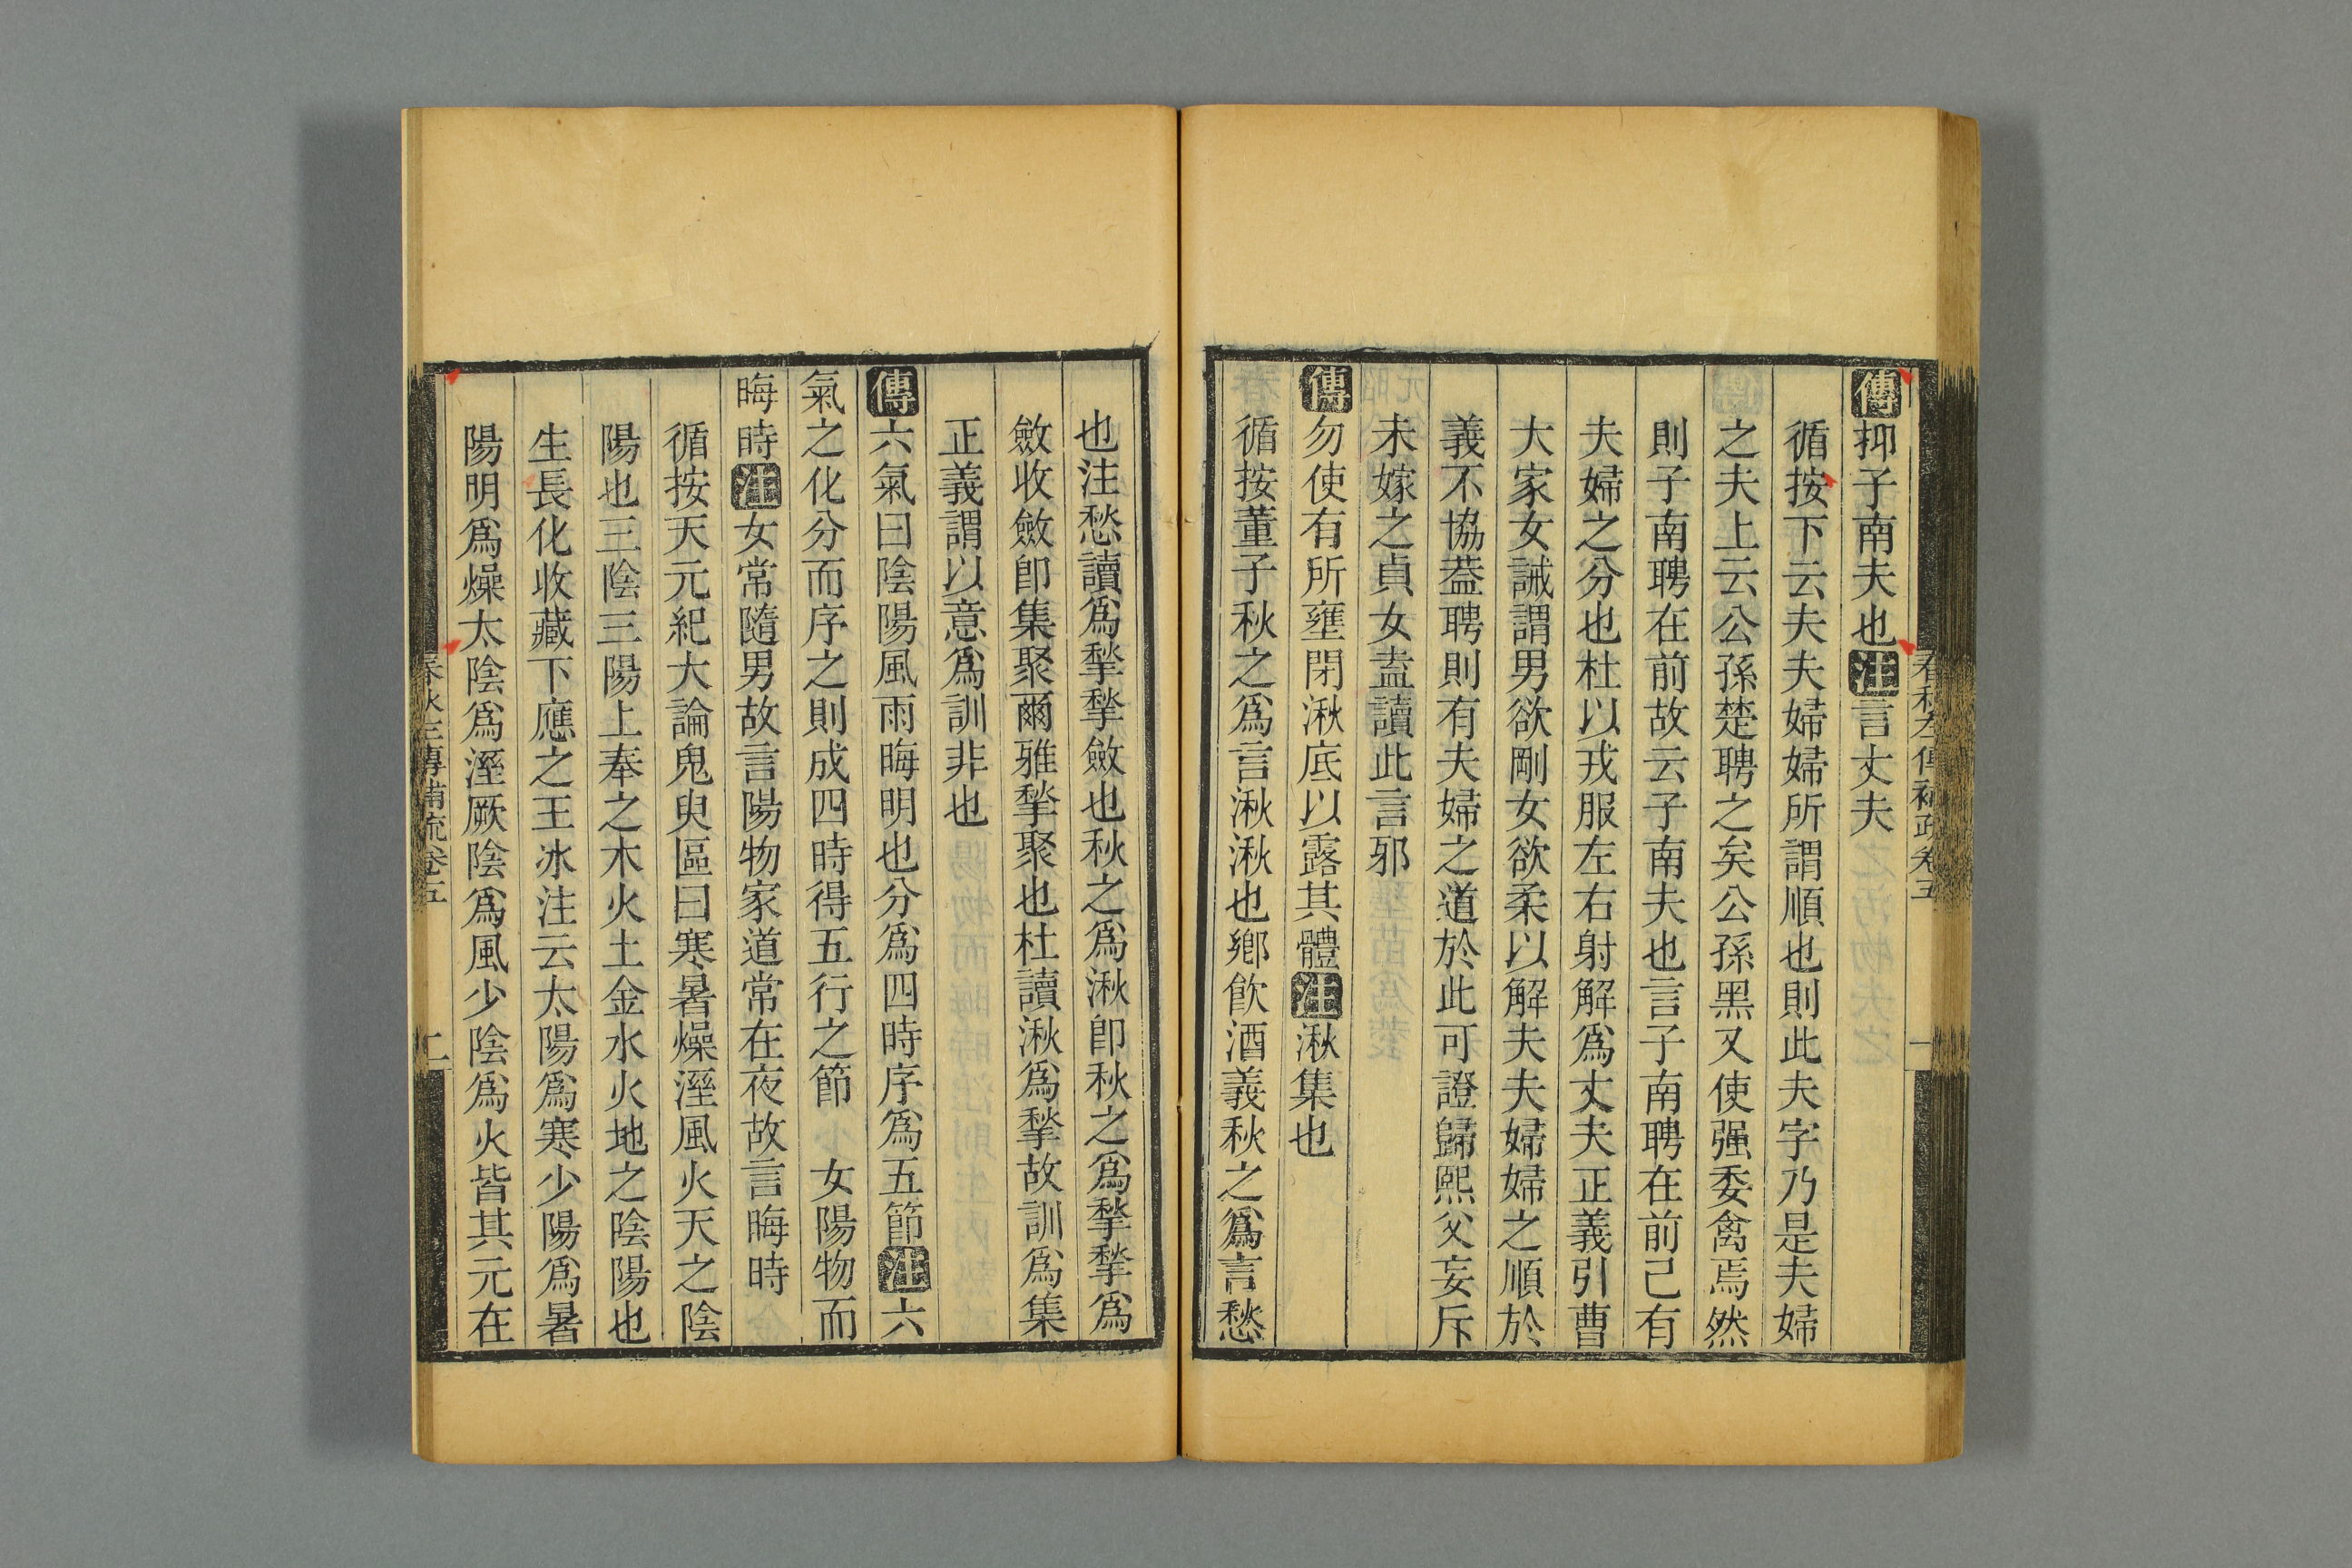 傳抑子南夫也注言丈夫
循按下云夫夫婦婦所謂順也則此夫字乃是夫婦
之夫上云公孫楚聘之矣公孫黑又使强委禽焉然
則子南聘在前故云子南夫也言子南聘在前己有
夫婦之分也杜以戎服左右射解爲丈夫正義引曹
大家女誡謂男欲剛女欲柔以解夫夫婦婦之順於
義不協葢聘則有夫婦之道於此可證歸熙父妄斥
未嫁之貞女盍讀此言邪
傳勿使有所壅閉湫底以露其體注湫集也
循按董子秋之爲言湫湫也鄉飮酒義秋之爲言愁
也注愁讀爲揫揫斂也秋之爲湫卽秋之爲揫揫爲
斂收斂卽集聚爾雅揫聚也杜讀湫爲揫故訓爲集
正義謂以意爲訓非也
傳六氣曰陰陽風雨晦明也分爲四時序爲五節注六
氣之化分而序之則成四時得五行之節　女陽物而
晦時注女常隨男故言陽物家道常在夜故言晦時
循按天元紀大論鬼臾區曰寒暑燥溼風火天之陰
陽也三陰三陽上奉之木火土金水火地之陰陽也
生長化收藏下應之王冰注云太陽爲寒少陽爲暑
陽明爲燥太陰爲溼厥陰爲風少陰爲火皆其元在
春秋左傳補疏卷五
一
春秋左傳補疏卷五
二